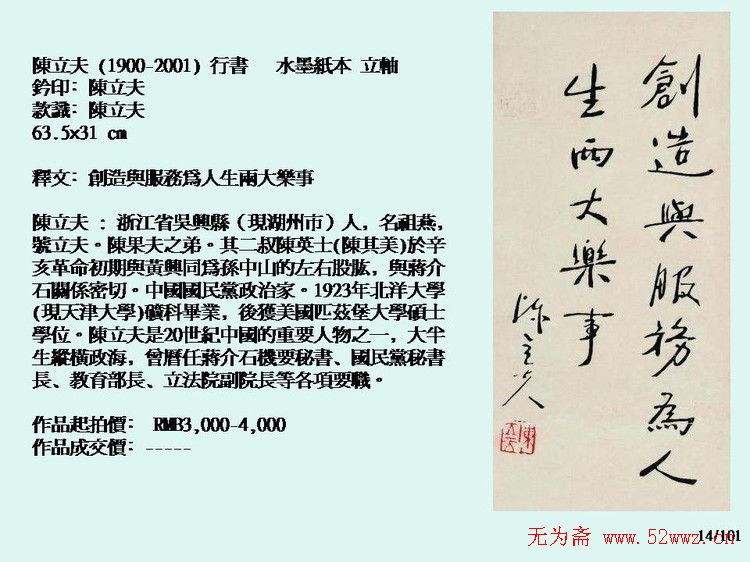 陳立夫 (1900-2001) 行書 水墨紙本 立軸
鈐印: 陳立夫
款識: 陳立夫
63.5x31 cm
釋文: 創造與服務爲人生兩大樂事
陳立夫 : 浙江省吳興縣（現湖州市）人，名祖燕，
號立夫。陳果夫之弟。其二叔陳英士(陳其美)於辛
亥革命初期與黃興同爲孫中山的左右股肱，與蔣介
石關係密切。中國國民黨政治家。1923年北洋大學
(現天津大學)礦科畢業，後獲美國匹茲堡大學碩士
學位。陳立夫是20世紀中國的重要人物之一，大半
生縱橫政海，曾曆任蔣介石機要秘書、國民黨秘書
長、教育部長、立法院副院長等各項要職。
作品起拍價: RMB3,000-4,000
作品成交價: -----
創造與服務為人
生兩大樂事
陳立夫
陳立夫
14/101
无为斋 www.52wwz.cn